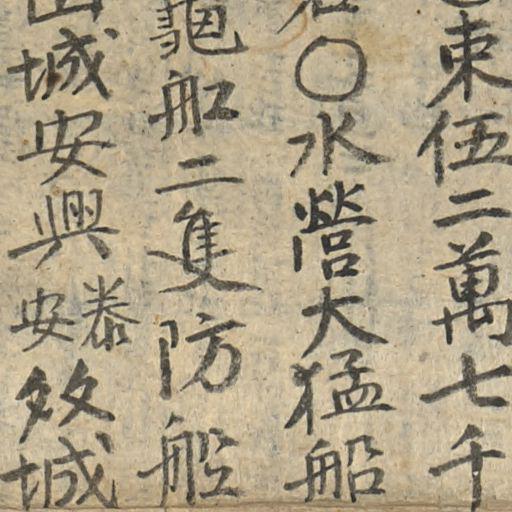 束伍二萬七千
○水營大猛船
龜舡二隻防船
城安興泰安效城